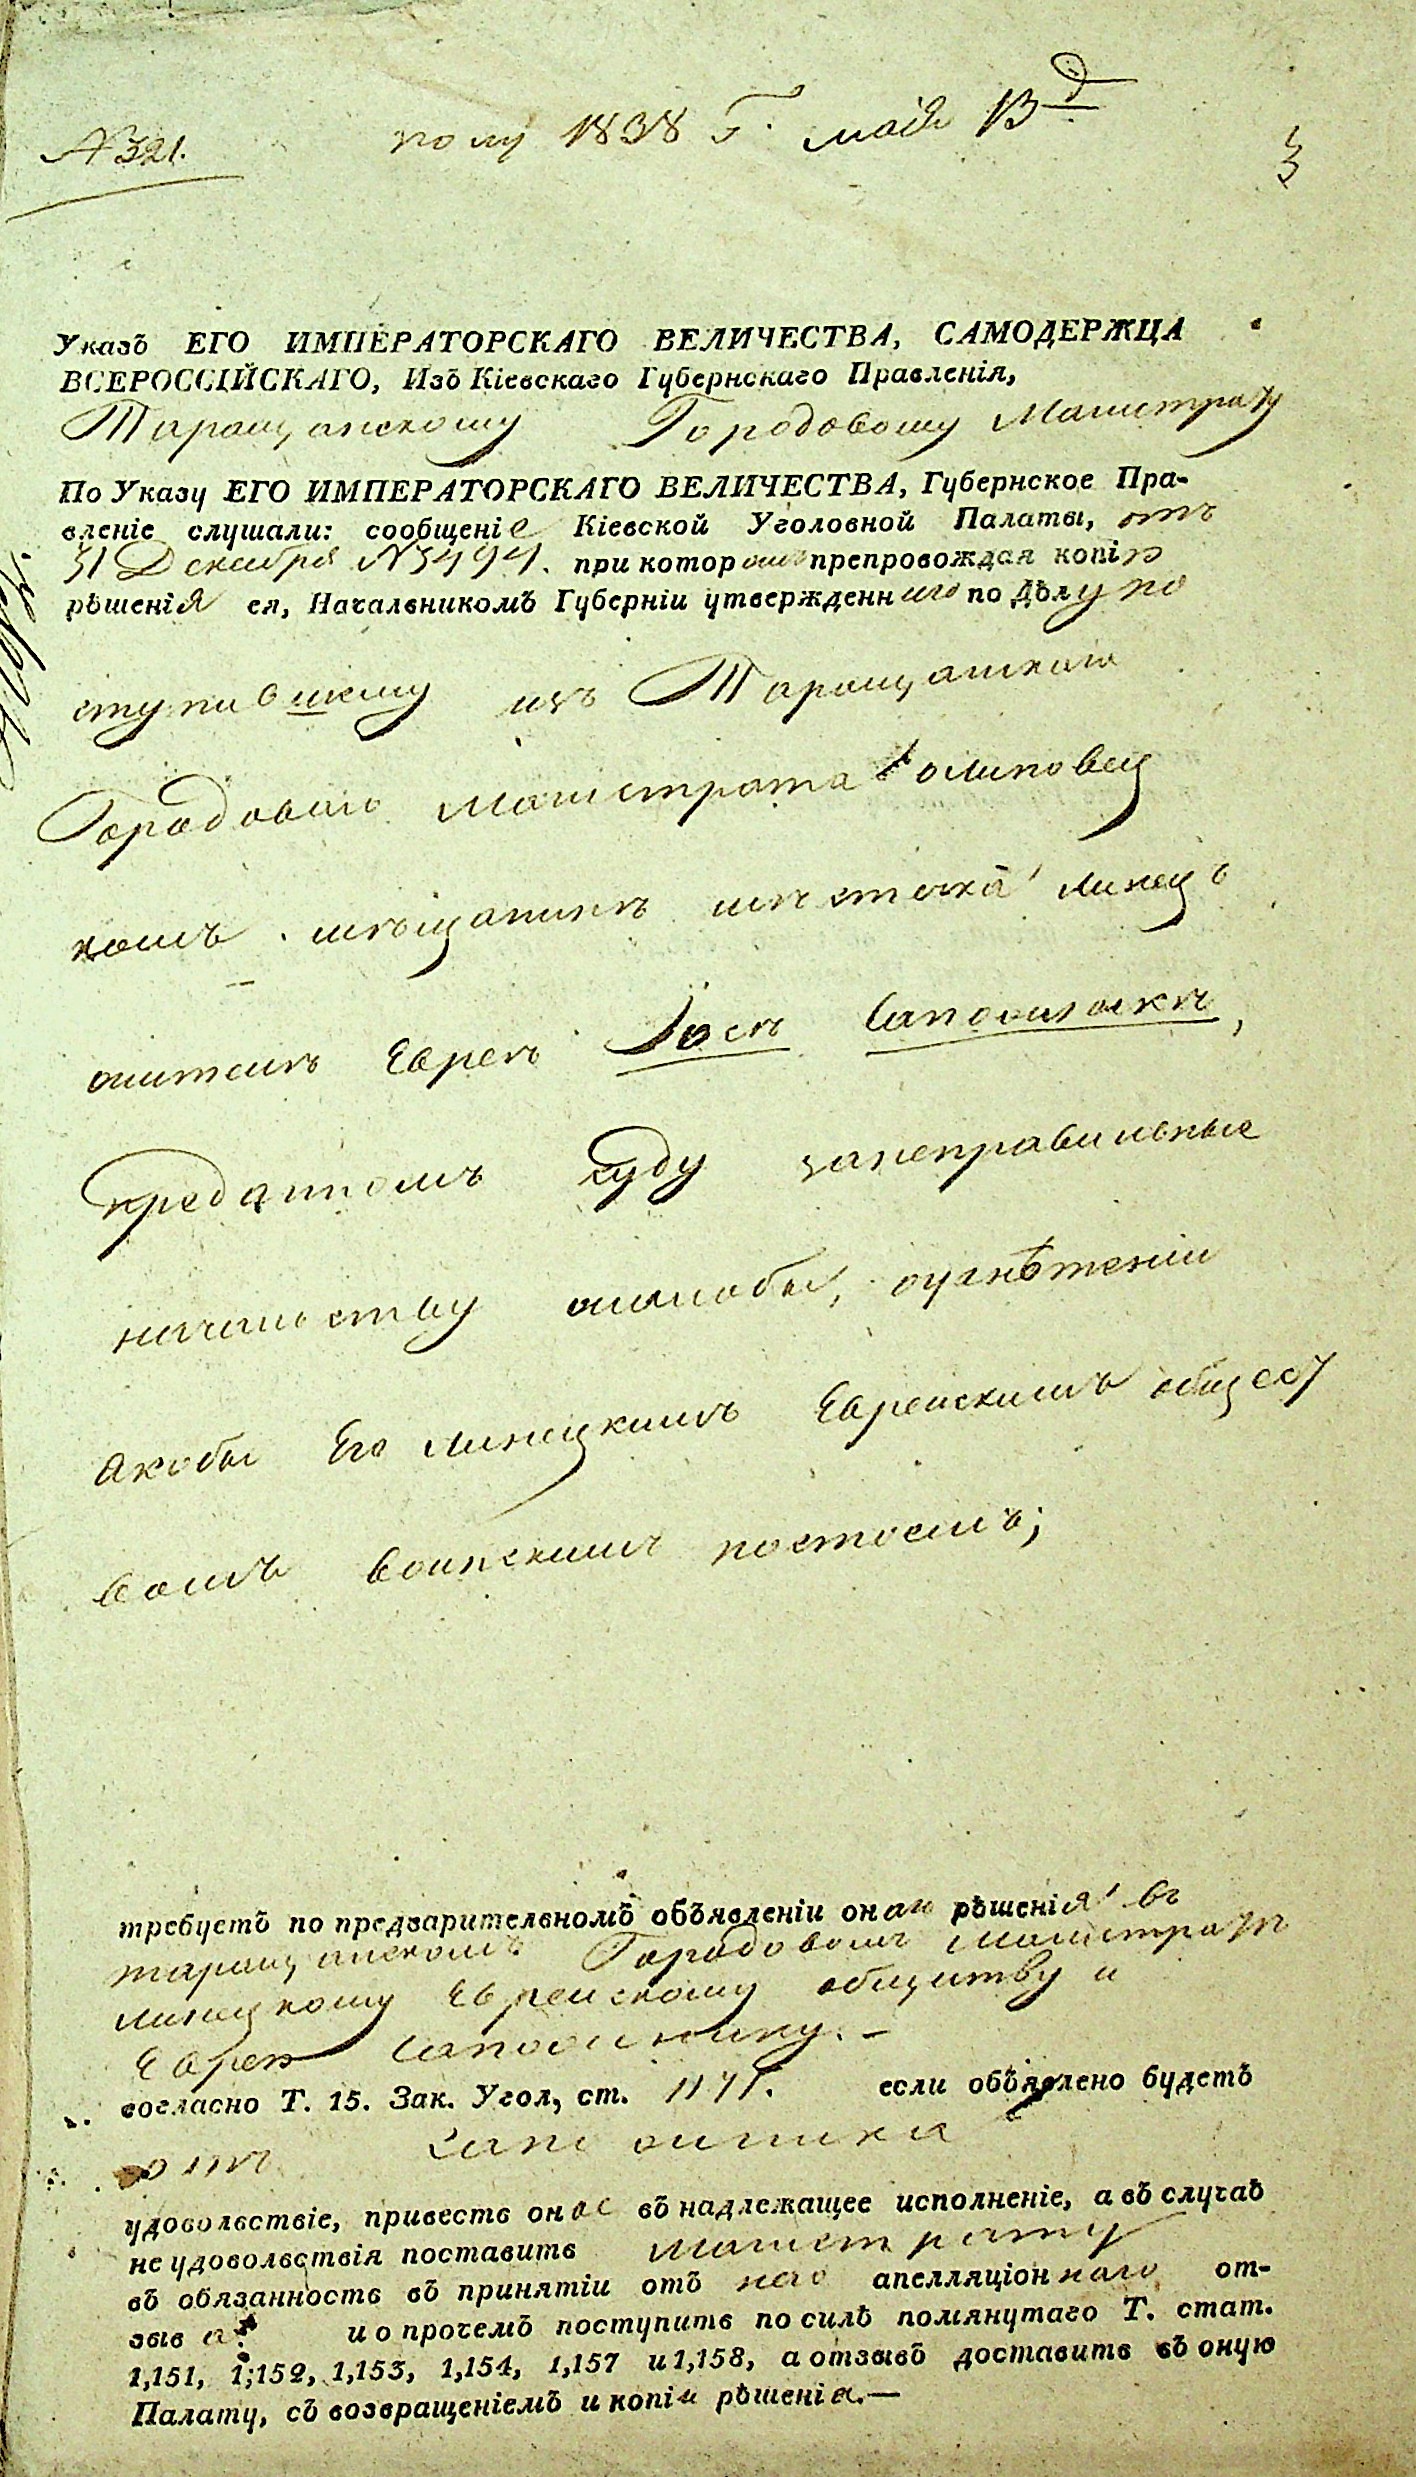 № 321.
полу 1838 г. маія 13д
3
Указъ ЕГО ИМПЕРАТОРСКАГО ВЕЛИЧЕСТВА, САМОДЕРЖЦА
ВСЕРОССІЙСКАГО, Изъ Кіевскаго Губернскаго Правленія,
Таращанскому Городовому Магистрату
По Указу ЕГО ИМПЕРАТОРСКАГО ВЕЛИЧЕСТВА, Губернское Пра-
вленіе слушали: сообщеніе Кіевской Уголовной Палаты, отъ
31 Декабря № 3494. при которомъ препровождая копію
рѣшенія ея, Начальникомъ Губерніи утвержденнаго по Дѣлу по
ступившему изъ Таращанскаго
Городоваго Магистрата о липовец
комъ мѣщанинѣ мѣстечка Линецъ
жителѣ Евреѣ Іосѣ Сапожникѣ,
преданномъ суду занеправильные
начальству жалобы, оугнѣтеніи
якобы Его Линецкимъ Еврейскимъ общест
вомъ воинскимъ постоемъ;
требуетъ по предварительномъ объявленіи онаго рѣшенія въ
таращанскомъ Городовомъ Магистратѣ
линецкому Еврейскому обществу и
Еврею Сапожнику. –
согласно Т. 15. Зак. Угол, ст. если объявлено будетъ
отъ Сапожника
удовольствіе, привесть оное въ надлежащее исполненіе, а въ случаѣ
не удовольствія поставить Магистрату
въ обязанность въ принятіи отъ него апелляціоннаго от-
зыва и о прочемъ поступить по силѣ помянутаго Т. стат.
1,151, 1,152, 1,153, 1,154, 1,157 и 1,158, а отзывъ доставить въ оную
Палату, съ возвращеніемъ и копіи рѣшенія.—